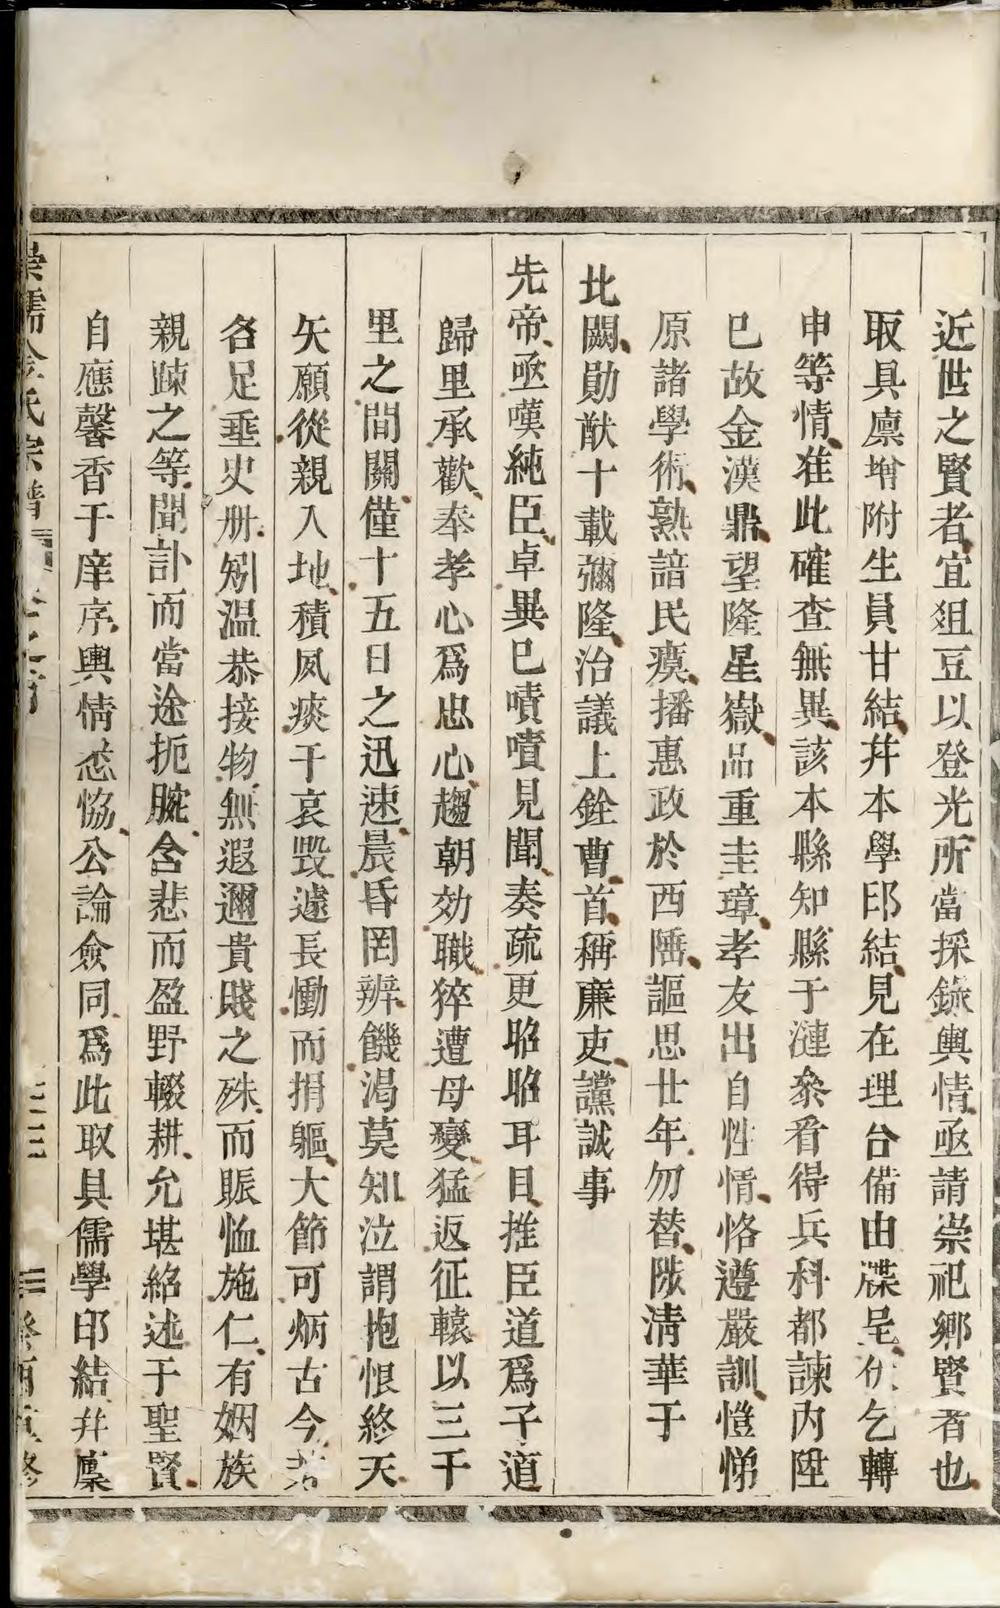 近世之賢者宜俎豆以登光所當採錄輿情亟請崇祀鄉賢者也
取具廪增附生員甘結幷本學印結見在理合備由牒呈伏乞轉
申等情准此確查無異該本縣知縣于漣叅看得兵科都諫內陞
已故金漢鼎望隆星嶽品重圭璋孝友出自性情恪遵嚴訓愷悌
原諸學術熟諳民瘼播惠政於西陲謳思廿年勿替陟清華于
北闕勛猷十載彌隆治議上銓曹首稱廉吏讜誠事
先帝亟嘆純臣卓異已嘖嘖見聞奏疏更昭昭耳目推臣道爲子道
歸里承歡奉孝心爲忠心趨朝効職猝遭母變猛返征轅以三千
里之間關僅十五日之迅速晨昏罔辨饑渴莫知泣謂抱恨終天
矢願從親入地積夙痰于哀毀遽長慟而捐軀大節可炳古今
各足垂史册矧温恭接物無遐邇貴賤之殊而賑恤施仁有姻族
親疎之等聞訃而當途扼腕含悲而盈野輟耕允堪紹述于聖賢
自應馨香于庠序輿情悉恊公論僉同爲此取具儒學印結幷廩
崇儒金氏宗譜 卷之首 癸酉重修